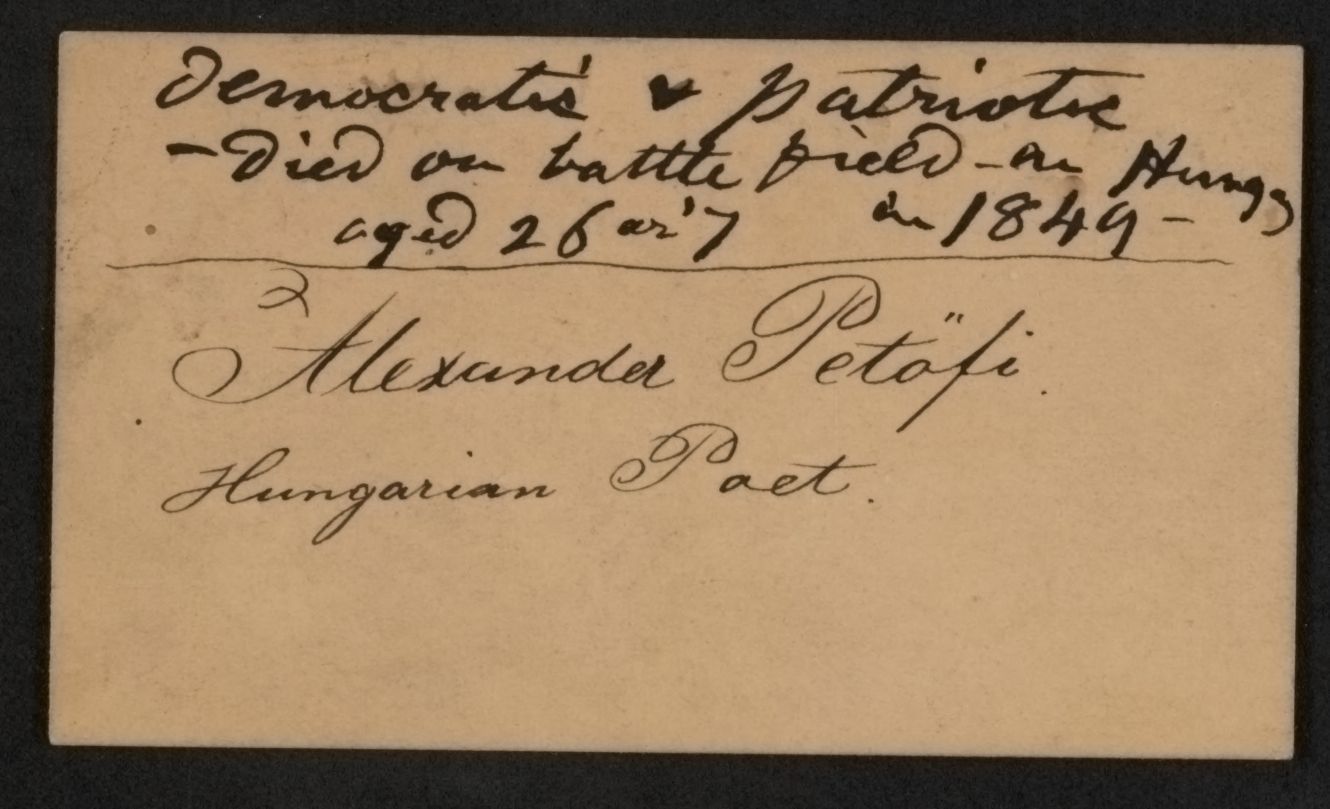 Democratic & patriotic
- Died on battle field - in Hungy
aged 26 or '7 in 1849 -
Alexander Petöfi.
Hungarian Poet.